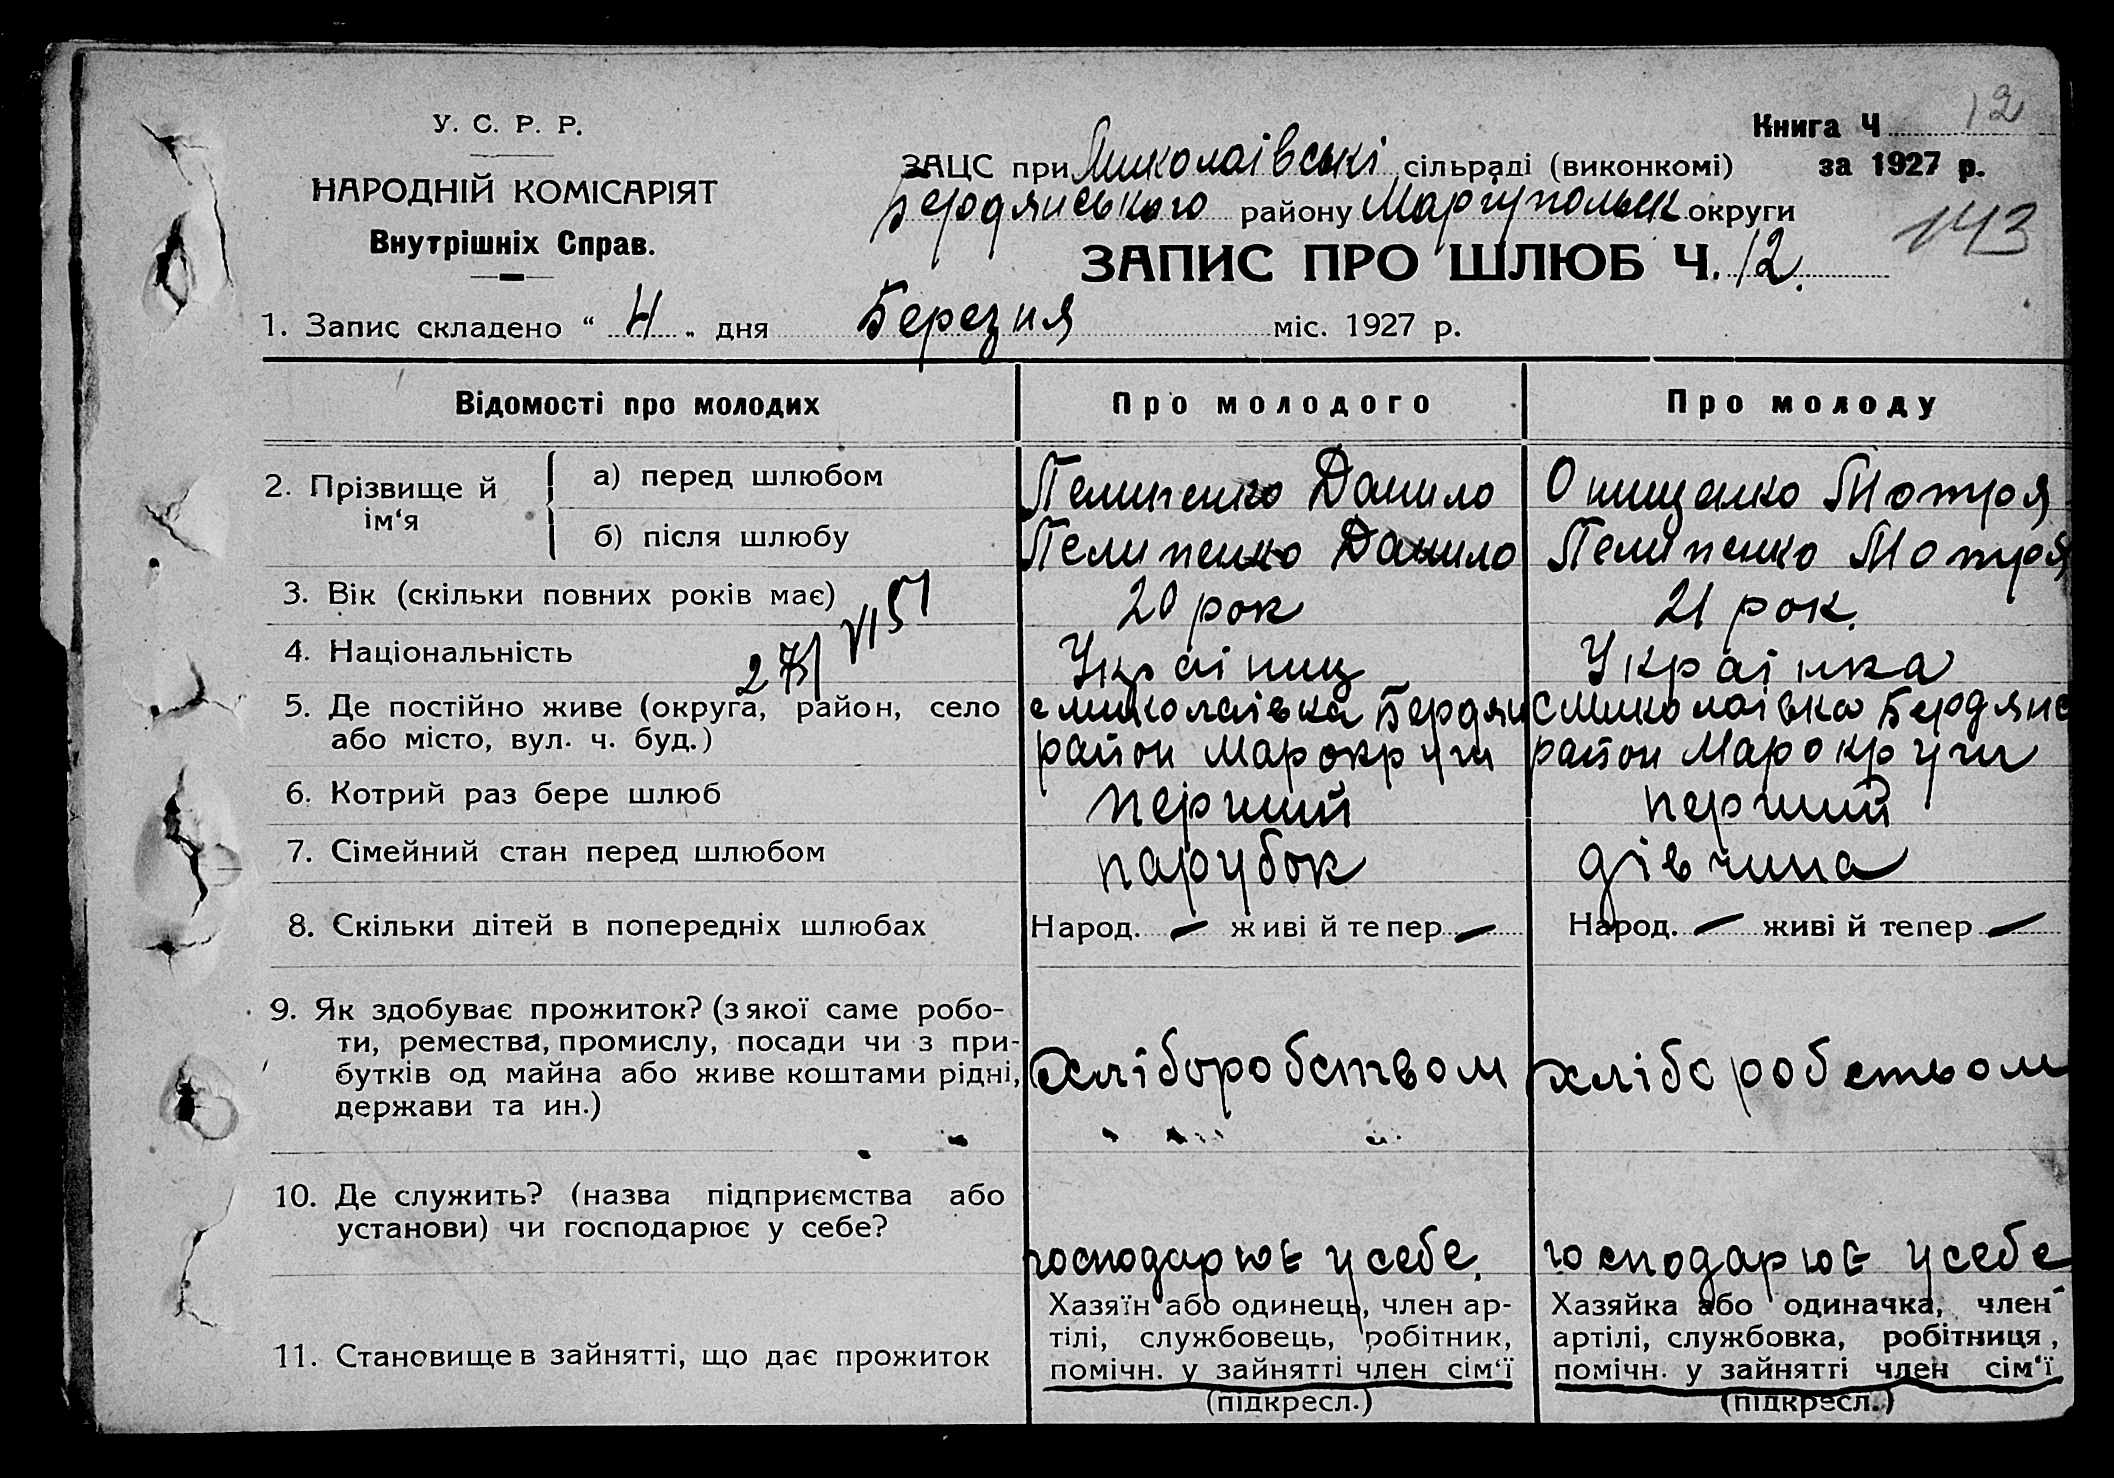 У. С. Р. Р.
НАРОДНІЙ КОМІСАРІЯТ
Внутрішніх Справ.
Книга Ч 12
ЗАЦС при Миколаівські сільраді (виконкомі) за 1927 р.
Бердянського району Маріупольск округи
143
ЗАПИС ПРО ШЛЮБ Ч. 12.
1. Запис складено “ 4 „ дня Березня міс. 1927 р.
Відомості про молодих Про молодого Про молоду
2. Прізвище й ім‘я
а) перед шлюбом Пелипенко Данило Онищенко Мотря
б) після шлюбу Пелипенко Данило Пелипенко Мотря
3. Вік (скільки повних років має) 20 рок 21 рок.
4. Національність Украінец Украінка
5. Де постійно живе (округа, район, село с Миколаівка Бердян с Миколаівка Бердянс
або місто, вул. ч. буд.) район Марокруги район Марокруги
6. Котрий раз бере шлюб перший перший
7. Сімейний стан перед шлюбом парубок дівчина
8. Скільки дітей в попередніх шлюбах Народ. — живі й тепер — Народ. — живі й тепер —
9. Як здобуває прожиток? (з якої саме робо-
ти, ремества, промислу, посади чи з при-
бутків од майна або живе коштами рідні, хліборобством хліборобством
держави та ин.)
10. Де служить? (назва підприємства або
установи) чи господарює у себе? господарює у себе. господарює у себе
11. Становище в зайнятті, що дає прожиток
Хазяїн або одинець, член ар-
тілі, службовець, робітник,
помічн. у зайнятті член сім‘ї
(підкресл.)
Хазяйка або одиначка, член
артілі, службовка, робітниця,
помічн. у зайнятті член сім‘ї
(підкресл.)